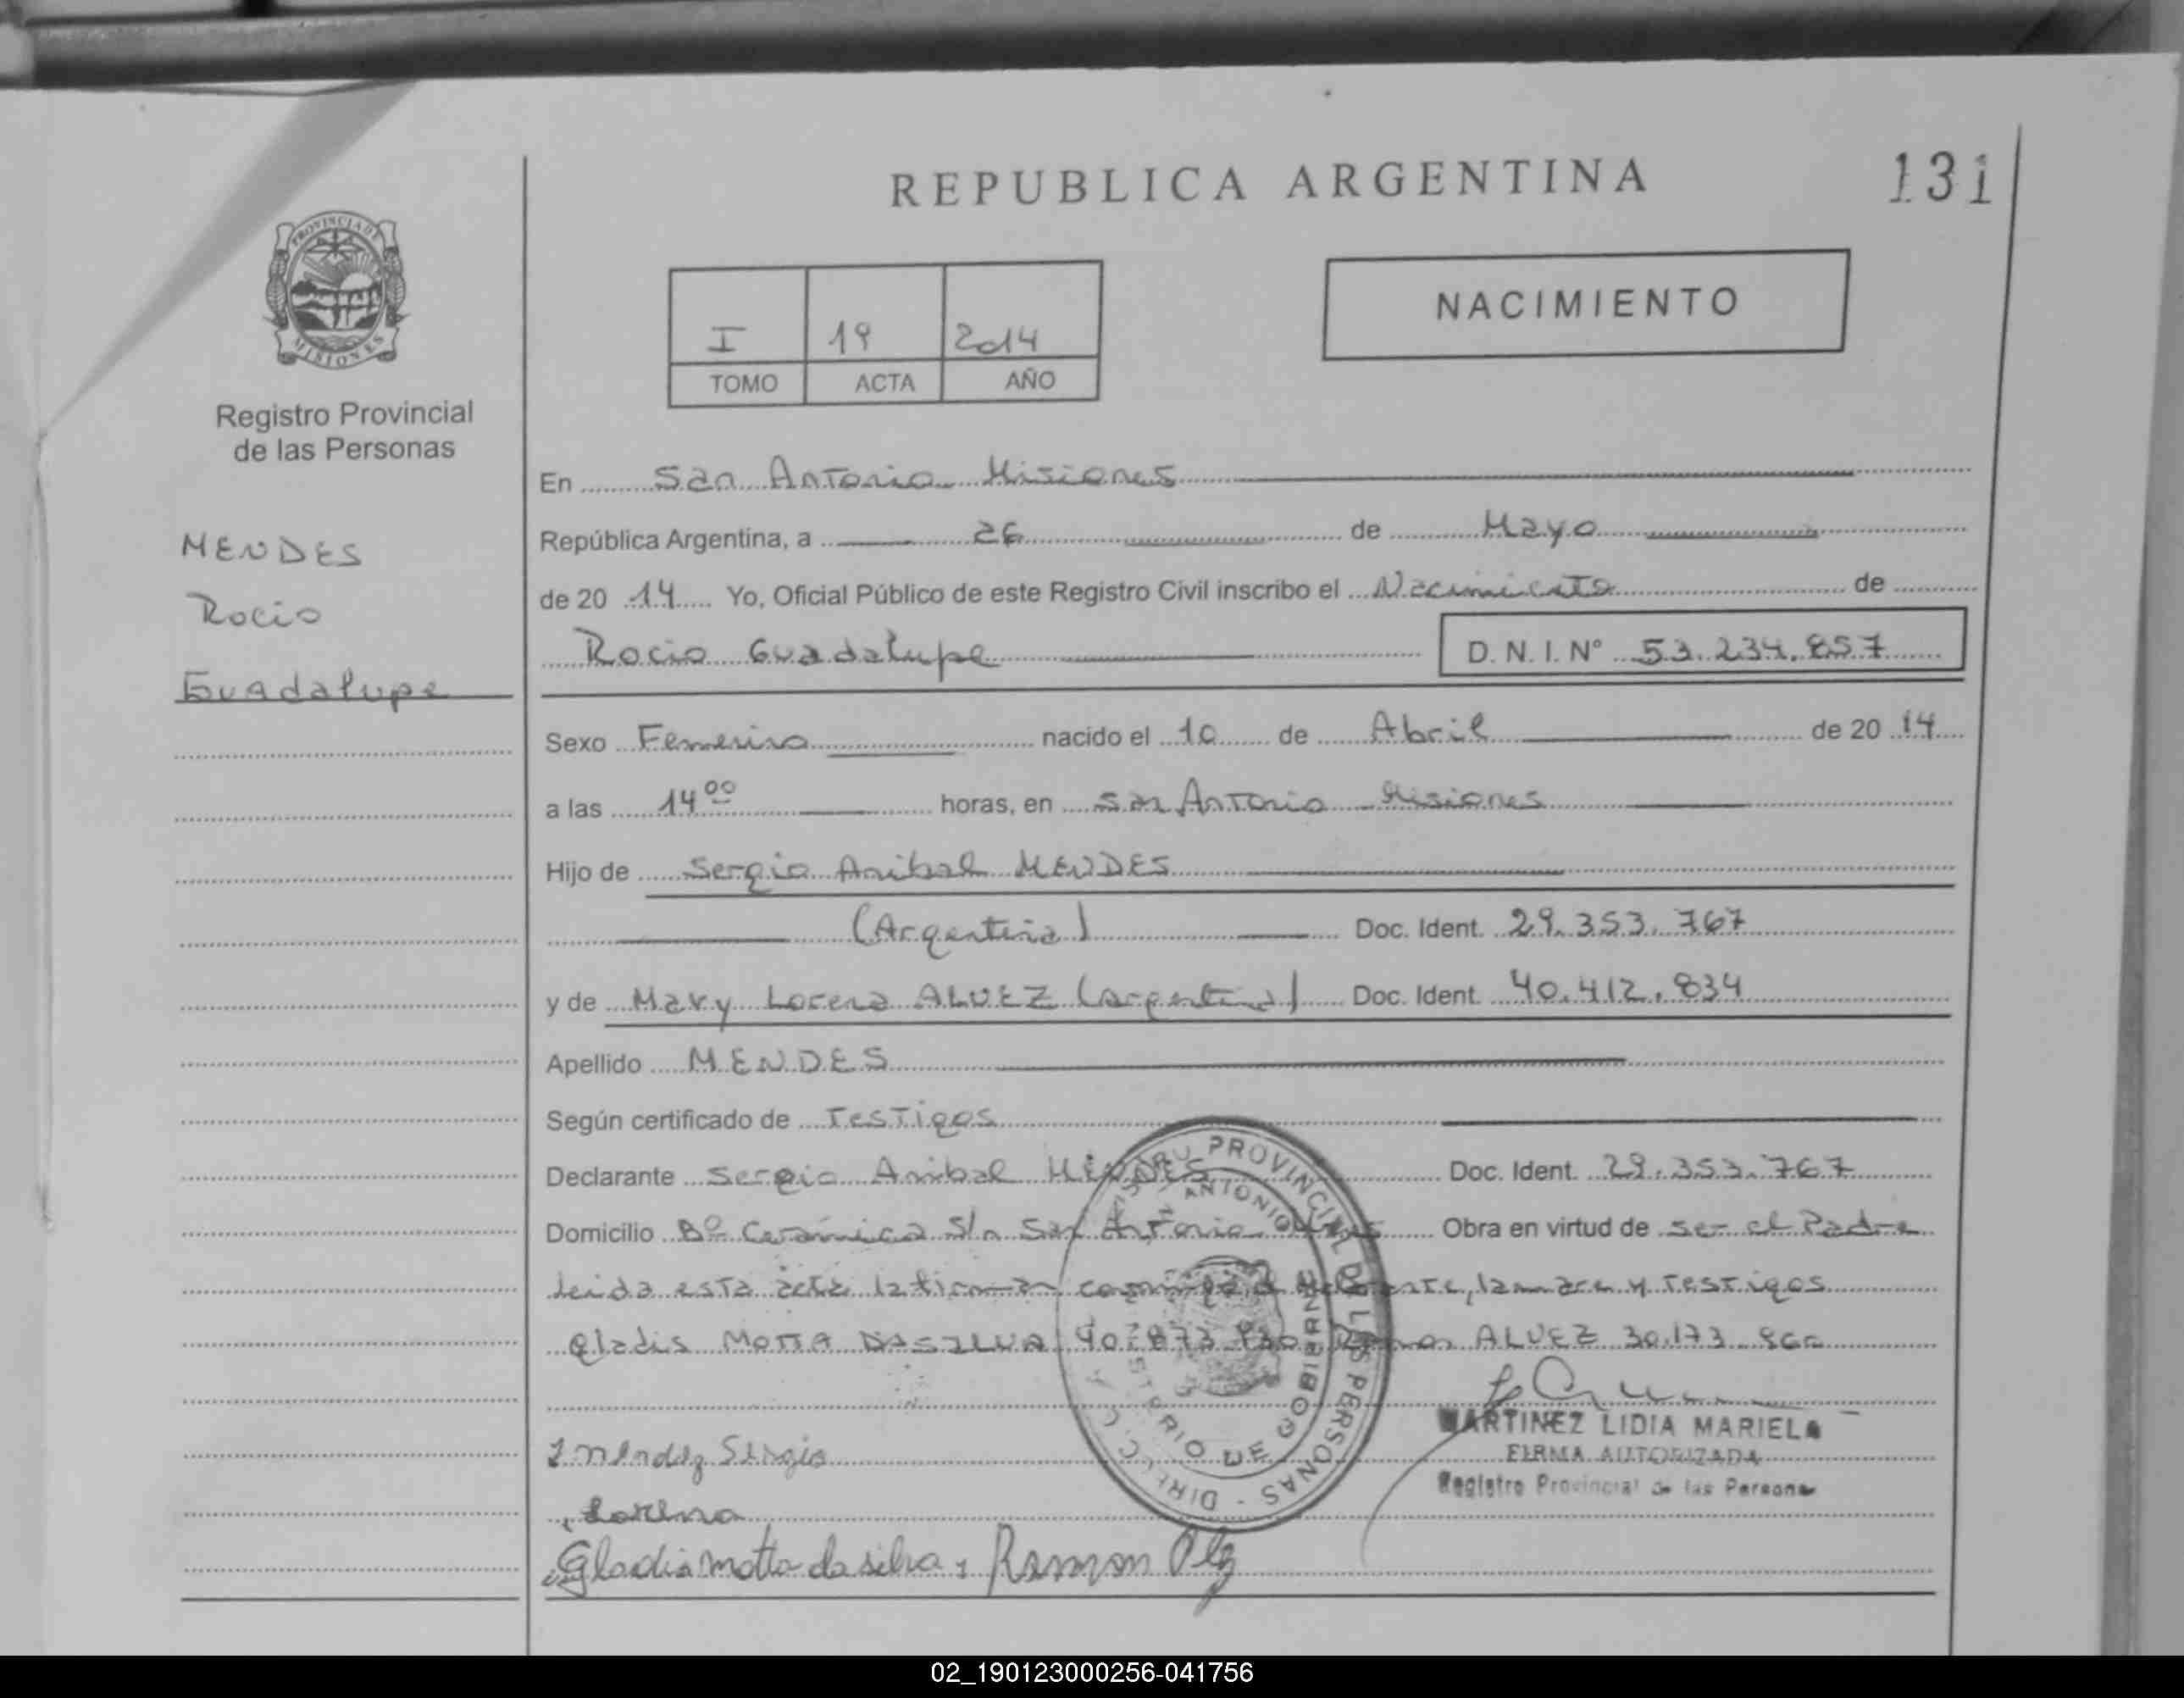 REPUBLICA ARGENTINA
131
PROVINCIA DE
MISIONES
Registro Provincial
de las Personas
I 19 2014
TOMO ACTA AÑO
NACIMIENTO
MENDES
Rocio
Guadalupe
En San Antonio Misiones
República Argentina, a 26 de Mayo
de 20 14 Yo, Oficial Público de este Registro Civil inscribo el Nacimiento de
Rocio Guadalupe D. N. I. N° 53.234.857
Sexo Femenino nacido el 10 de Abril de 20 14
a las 14 00 horas, en San Antonio Misiones
Hijo de Sergio Anibal MENDES
(Argentina) Doc. Ident. 29.353.767
y de Mary Lorena ALVEZ (argentina) Doc. Ident. 40.412.834
Apellido MENDES
Según certificado de Testigos
Declarante Sergio Anibal MENDES Doc. Ident. 29.353.767
Domicilio Bº Cerámica S/n San Antonio Obra en virtud de ser el Padre
Leida esta acta la firman conmigo el y Testigos
Gladis MOTTA DASILVA 40.873 Ramon ALVEZ 30.173.860
REGISTRO PROVINCIAL DE LAS PERSONAS - DIREC.
ANTONIO
MINISTERIO DE GOBIERNO
MARTINEZ LIDIA MARIELA
FIRMA AUTORIZADA
Registro Provincial de las Personas
Mendez Sergio
Lorena
Gladis motta da silva Ramon
02_190123000256-041756